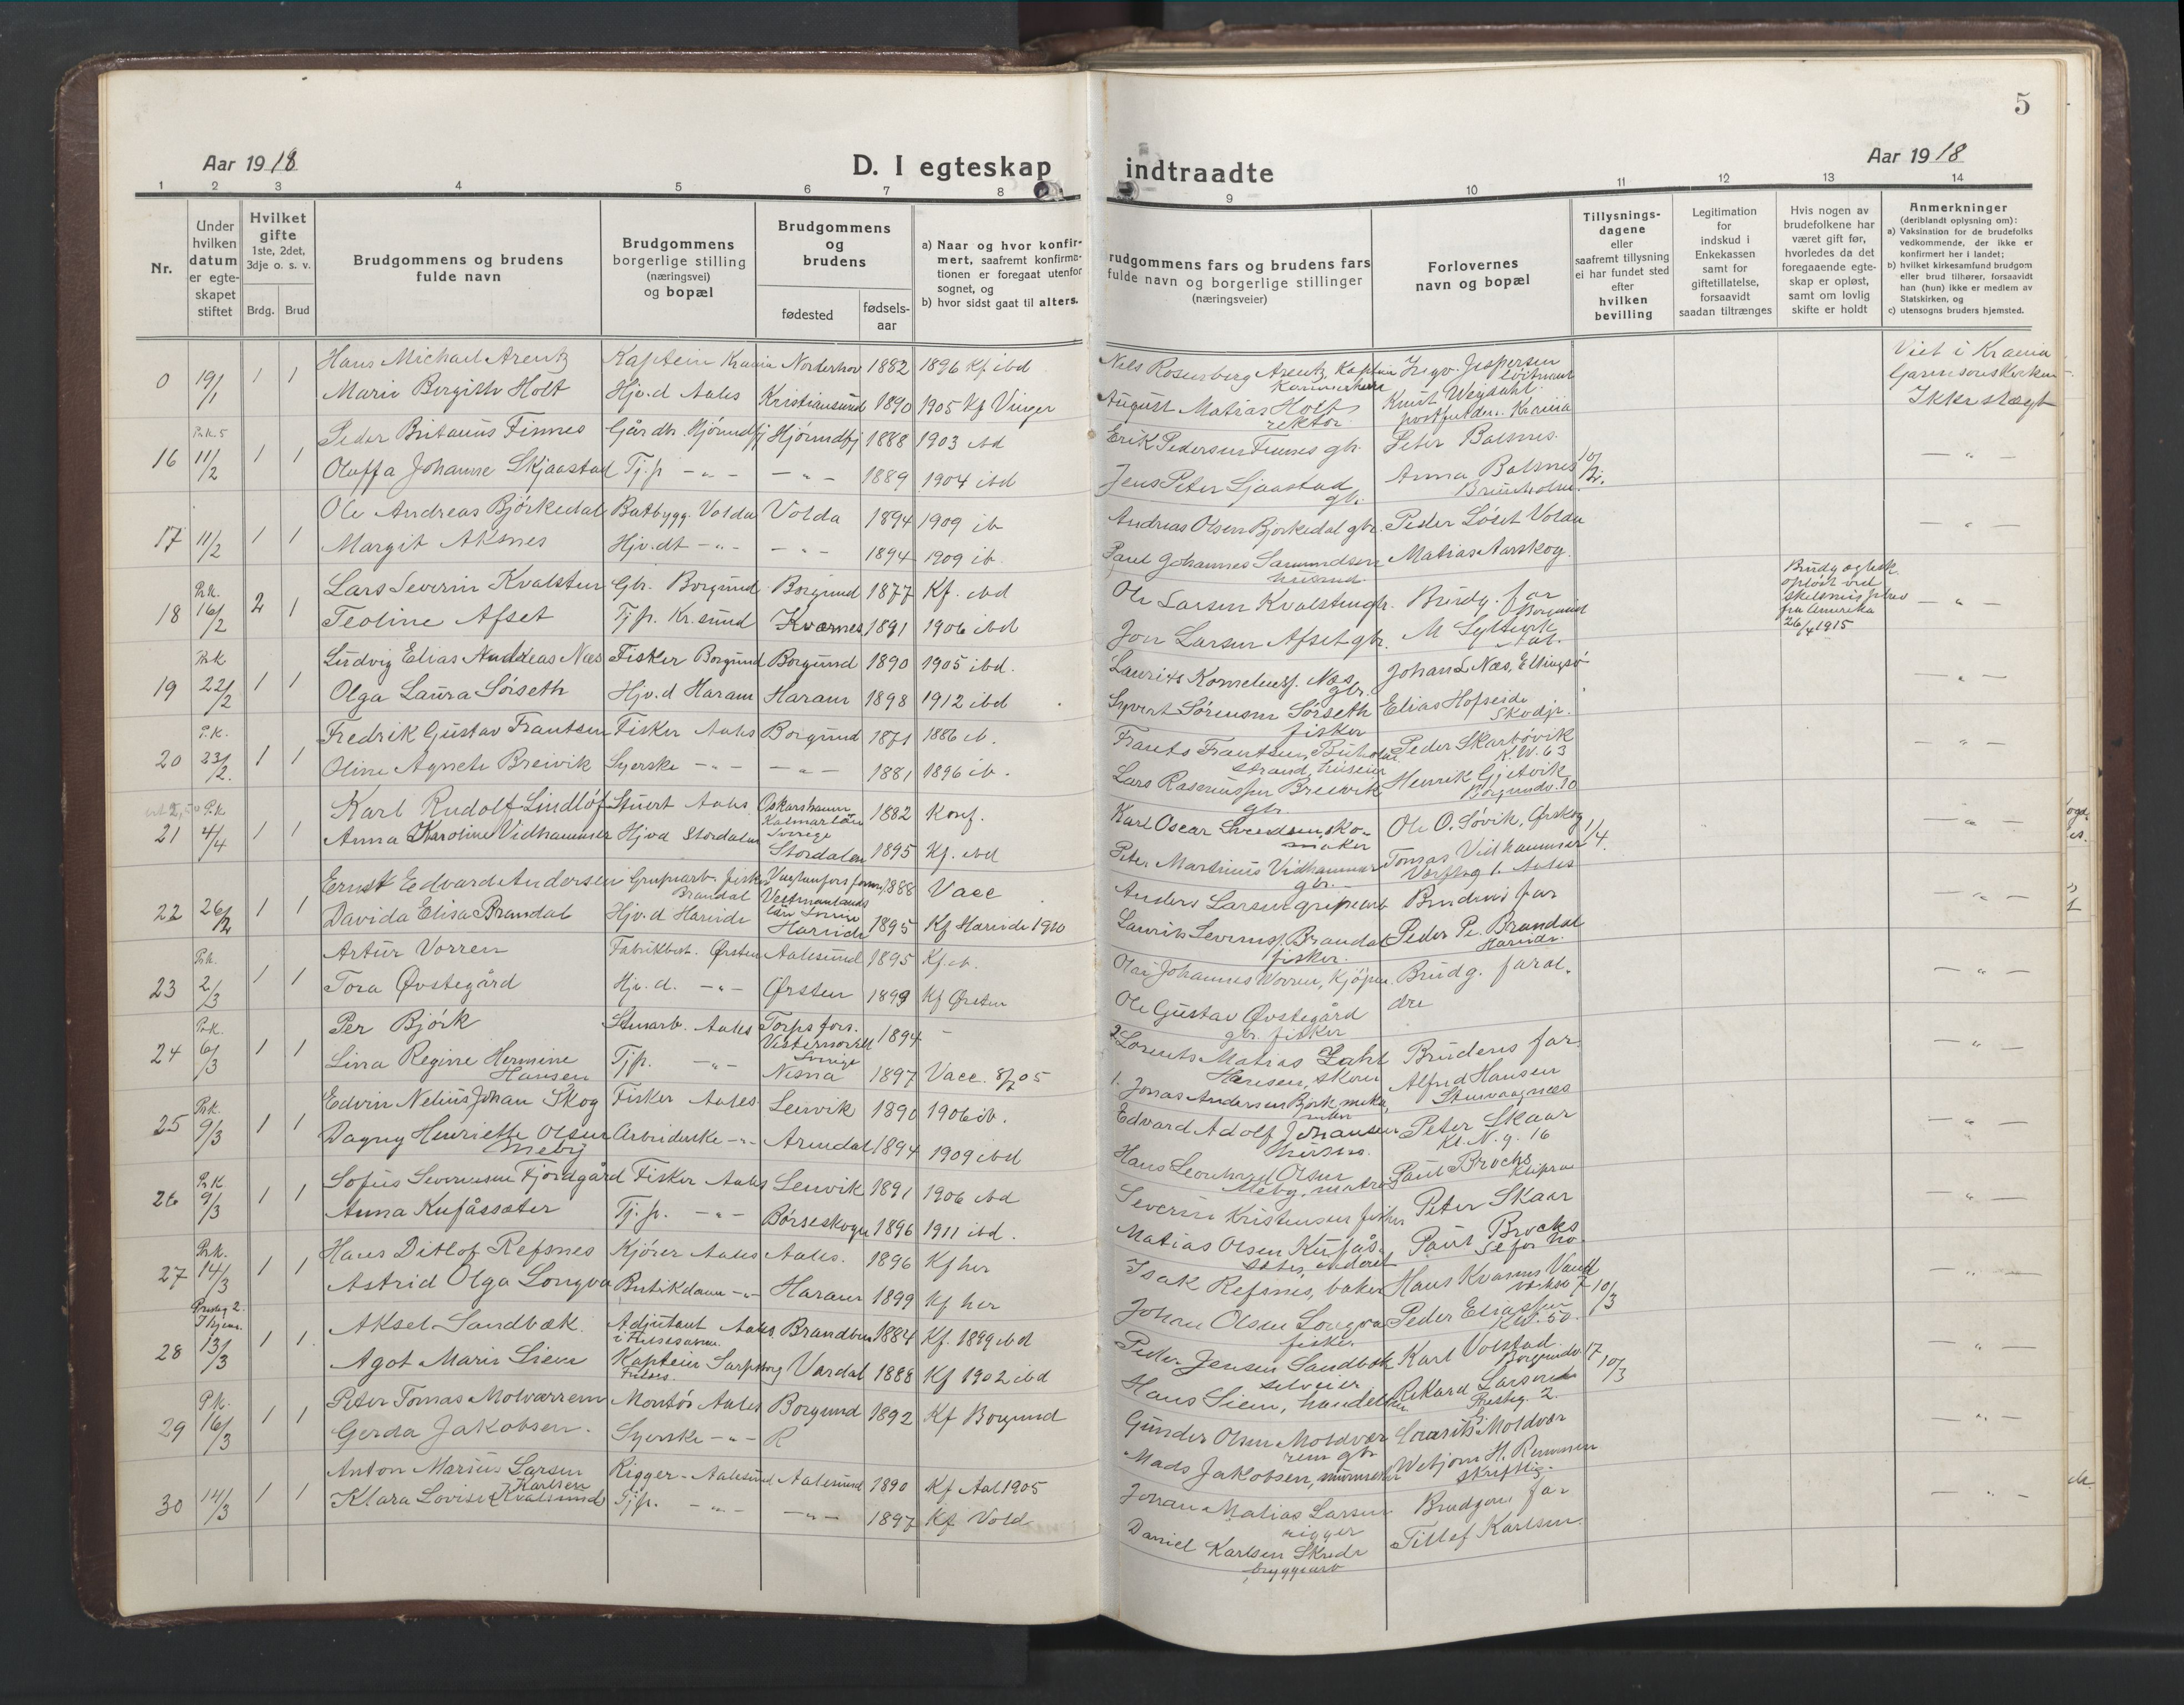 5
Aar 1918
D. I egteskap
indtraadte
Aar 1918
1 2 3 4 5 6 7 8 9 10 11 12 13 14
Nr.
Under
hvilken
datum
er egte-
skapet
stiftet
Hvilket
gifte
1ste, 2det,
3dje o. s. v.
Brdg. Brud
Brudgommens og brudens
fulde navn
Brudgommens
borgerlige stilling
(næringsvei)
og bopæl
Brudgommens
og
brudens
fødested
fødsels-
aar
a) Naar og hvor konfir-
mert, saafremt konfirma-
tionen er foregaat utenfor
sognet, og
b) hvor sidst gaat til alters.
rudgommens fars og brudens fars
fulde navn og borgerlige stillinger
(næringsveier)
Forlovernes
navn og bopæl
Tillysnings-
dagene
eller
saafremt tillysning
ei har fundet sted
efter
hvilken
bevilling
Legitimation
for
indskud i
Enkekassen
samt for
giftetillatelse,
forsaavidt
saadan tiltrænges
Hvis nogen av
brudefolkene har
været gift før,
hvorledes da det
foregaaende egte-
skap er opløst,
samt om lovlig
skifte er holdt
Anmerkninger
(deriblandt oplysning om):
a) Vaksination for de brudefolks
vedkommende, der ikke er
konfirmert her i landet;
b) hvilket kirkesamfund brudgom
eller brud tilhører, forsaavidt
han (hun) ikke er medlem av
Statskirken, og
c) utensogns bruders hjemsted.
0 19/1 1 1 Hans Michael Arentz Kaptein Krania Norderhov 1882 1896 Kf ibd
Marie Bergith Holt Hjv.d Aales Kristiansund 1890 1905 Kf Vinger
Nils Rosenberg Arentz, Kaptein
August Matias Holt
rektor
Viet i Krania
Garnisonskirken
Ikke slægt
16 11/2 1 1 Peder Britanus Finnes Gårdbr. Hjørundfj Hjørundfj 1888 1903 ibd
Oluffa Johanne Skjaastad Tj.p. -"- -"- 1889 1904 ibd
Erik Pedersen Finnes gbr. Peter Balsnes
Jens Peter Sjaastad Anna Balsnes
gbr.
17 11/2 1 1 Ole Andreas Bjørkedal Baatbygg. Volda Volda 1894 1909 ib
Margit Aksnes Hjv.dt -"- -"- 1894 1909 ib.
Andreas Olsen Bjørkedal gbr. Peder Løset Volda
Paul Johannes Samundsen Matias Aarskog.
husmd.
18 Pr.k. 16/2 2 1 Lars Severin Kvalsten Gbr. Borgund Borgund 1877 Kf. ibd
Teoline Afset Tj.p. Kr.sund Kværnes 1891 1906 ibd
Ole Larsen Kvalsten gbr. Brudg. far
Borgund
Joen Larsen Afset gbr. M Sylte
opløst ved
fra Amerika
26/4 1915
19 Pr.k 22/2 1 1 Ludvig Elias Andreas Næs Fisker Borgund Borgund 1890 1905 ibd.
Olga Laura Sørseth Hjv.d Haram Haram 1898 1912 ibd
Laurits Korneliuss. Næs Johan L Næs, Ellingsø
gbr.
Syvert Sørensen Sørseth Elias Hofseide
fisker Skodje.
20 P.k. 23/2. 1 1 Fredrik Gustav Frantsen Fisker Aales Borgund 1871 1886 ib.
Oline Agnete Breivik Syerske -"- -"- 1881 1896 ib.
Peder Skarbøvik
K.W. 63
Lars Rasmussen Breivik Henrik Gjetvik
gbr. Borgundv. 10
21 P.k 4/4 1 1 Karl Rudolf Lindlöf Stuert Aales Oskarshamn 1882 Konf.
Kalmarlän
Sverige
Anna Karoline Vidhammer Hjvd Stordalen Stordalen 1895 Kf. ibd
Karl Oscar Svedsen, sko- Ole O. Søvik, Ørskog 1/4.
maker
Peter Martinus Vidhammer Tomas Vidhammer
gbr. Aales
22 26/2 1 1 Ernst Edvard Andersen 1888 Vacc
Brandal Vestmanlands
län
Davida Elisa Brandal Hjv.d Hareide Hareide 1895 Kf Hareide 1910
Anders Larsen Brudens far
Laurits Severins. Brandal Peder Pe. Brandal
fisker. Hareide.
23 Pr.k. 2/3 1 1 Artur Vorren Fabrikbest. Ørsten Aalesund 1895 Kf. ib.
Tora Øvstegård Hjv.d. -"- Ørsten 1899 Kf Ørsten
Olai Johannes Vorren, Kjøpm. Brudg. foræl.
dre
Ole Gustav Øvstegård
gbr. fisker
24 Pr.k. 6/3 1 1 Per Björk Stuearb. Aales Torps fors. 1894 -
Vesternorrl
Sverige
Lina Regine Hermine Tjp. -"- Nesna 1897 Vacc. 8/7 05
Hansen
2. Lorents Matias Zahl Brudens far.
Hansen, skom Alfred Hansen
1. Jonas Andersen Bjørk, Stenvaagnæs
25 Pr.k. 9/3 1 1 Edvin Nelius Johan Skog Fisker Aales. Lenvik 1890 1906 ib.
Dagny Henriette Olsen Arbeiderske -"- Arendal 1894 1909 ibd
Meby
Edvard Adolf Johansen Peter Skaar
Kl. N. g. 16
Hans Leonhard Olsen Paul Brochs
Meby, matros
26 Pr.k 9/3 1 1 Sofus Severinsen Fjordgård Fisker Aales Lenvik 1891 1906 ibd
Anna Kufåssæter Tj.p. -"- Børseskogn 1896 1911 ibd.
Severin Kristensen fisker Peter Skaar
Matias Olsen Kufås- Paul Brochs
27 Pr.k. 14/3 1 1 Hans Ditlof Refsnes Kjører Aales Aales. 1896 Kf her
Astrid Olga Longva Butikdame -"- Haram 1899 Kf her
Isak Refsnes, baker 10/3
Johan Olsen Longva Peder Eliassen
fisker. K.W. 50.
28 13/3 1 1 Aksel Sandbæk. Adjutant Aales. Brandbu 1884 Kf. 1899 ibd
i Frelsesarm.
Agot Marie Lien Kaptein Sarpsborg Vardal 1888 Kf 1902 ibd
Frelses.
Peder Jensen Sandbæk Karl Volstad. 17
selveier Borgundv. 10/3
Hans Lien, handelsm. Rikard Larsen
Prestg. 2.
29 P.k. 16/3 1 1 Peter Tomas Molværrem Montør Aales Borgund 1892 Kf Borgund
Gerda Jakobsen. Syerske -"- R
Gunder Olsen Moldvær Laurits Moldvær
rem gbr
Mads Jakobsen, murmester
skriftlig.
30 14/3 1 1 Anton Marius Larsen Rigger- Aalesund Aalesund 1890 Kf Aal 1905
Karlsen
Klara Lovise Kvalsund Tjp. -"- -"- 1897 Kf Vold
Johan Matias Larsen Brudgom. far
rigger
Daniel Karlsen Skrede Tillef Karlsen.
bryggearb